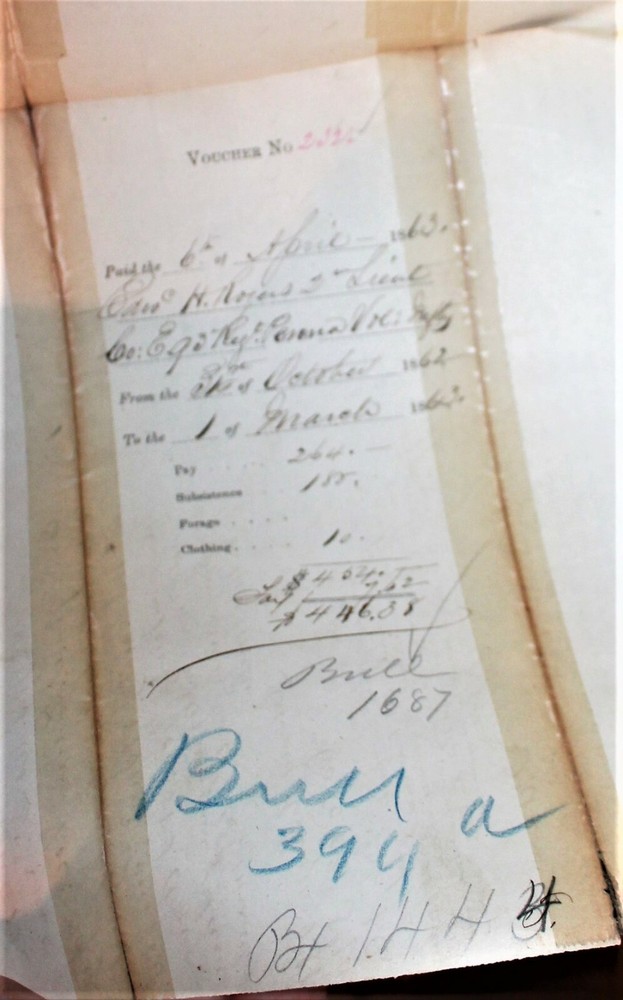 VOUCHER No
Paid the 6th of April 1863.
Edwd H. Rogers 2d Lieut
Co: E 93d Regt. Penna Vols: Infty
From the of October 1862
To the 1 of March 1863.
Pay . . . . 264.
Subsistence
Forage . . . .
Clothing . . . . 10.
$ 454.
Tax 7.62
$ 446.38
Bull
1687
Bull a
394
Bt 144